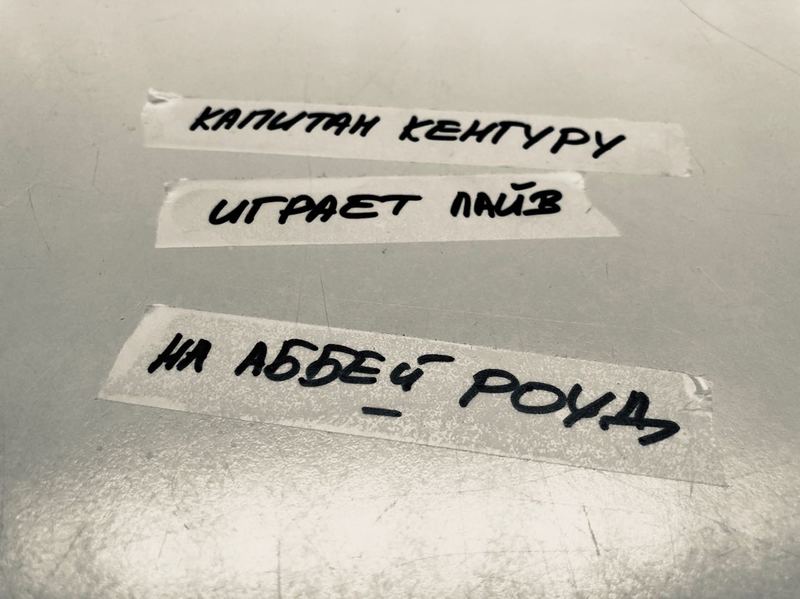 КАПИТАН КЕНГУРУ
ИГРАЕТ ЛАЙВ
НА АББЕЙ РОУД